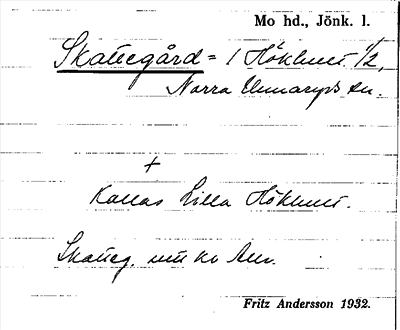 Mo hd., Jönk. l.
Skattegård = 1 Höklunt 1/2,
Norra Unnaryds sn.
+
Kallas Lilla Höklunt.
Skatteg.
Fritz Andersson 1932.